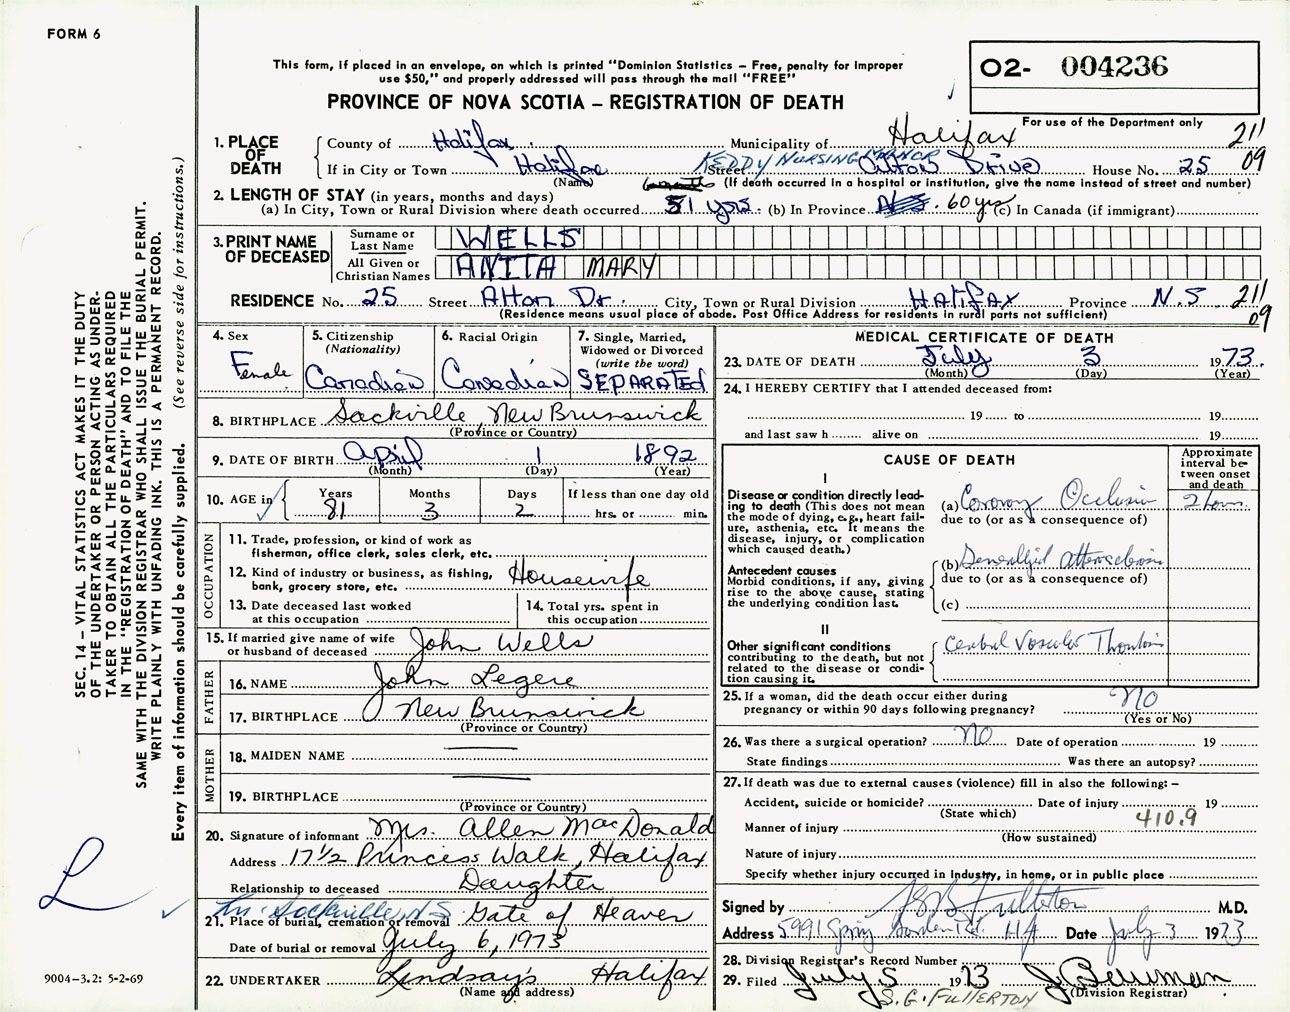 FORM 6
This form, if placed in an envelope, on which is printed "Dominion Statistics – Free, penalty for improper
use $50," and properly addressed will pass through the mail "FREE"
PROVINCE OF NOVA SCOTIA – REGISTRATION OF DEATH
O2- 004236
For use of the Department only
211
09
1. PLACE OF DEATH
County of Halifax Municipality of Halifax
KEDDY NURSING MANOR
If in City or Town Halifax Street Alton Drive House No. 25
(Name) (If death occurred in a hospital or institution, give the name instead of street and number)
2. LENGTH OF STAY (in years, months and days)
(a) In City, Town or Rural Division where death occurred 51 yrs. (b) In Province N.S. 60 yrs (c) In Canada (if immigrant)
3. PRINT NAME OF DECEASED
Surname or Last Name WELLS
All Given or Christian Names ANITA MARY
RESIDENCE No. 25 Street Alton Dr. City, Town or Rural Division HALIFAX Province N.S 211
09
(Residence means usual place of abode. Post Office Address for residents in rural parts not sufficient)
4. Sex
Female
5. Citizenship
(Nationality)
Canadian
6. Racial Origin
Canadian
7. Single, Married,
Widowed or Divorced
(write the word)
SEPARATED
8. BIRTHPLACE Sackville New Brunswick
(Province or Country)
9. DATE OF BIRTH April 1 1892
(Month) (Day) (Year)
10. AGE in
Years Months Days If less than one day old
81 3 2 hrs. or min.
OCCUPATION
11. Trade, profession, or kind of work as
fisherman, office clerk, sales clerk, etc.
12. Kind of industry or business, as fishing,
bank, grocery store, etc. Housewife
13. Date deceased last worked
at this occupation
14. Total yrs. spent in
this occupation
15. If married give name of wife
or husband of deceased John Wells
FATHER
16. NAME John Legere
17. BIRTHPLACE New Brunswick
(Province or Country)
MOTHER
18. MAIDEN NAME
19. BIRTHPLACE
(Province or Country)
20. Signature of informant Mrs. Allen MacDonald
Address 17½ Princess Walk, Halifax
Relationship to deceased Daughter
Sackville N.S.
21. Place of burial, cremation or removal Gate of Heaven
Date of burial or removal July 6, 1973
22. UNDERTAKER Lindsay's Halifax
(Name and address)
MEDICAL CERTIFICATE OF DEATH
23. DATE OF DEATH July 3 1973
(Month) (Day) (Year)
24. I HEREBY CERTIFY that I attended deceased from:
19 to 19
and last saw h alive on 19
CAUSE OF DEATH
Approximate
interval be-
tween onset
and death
I
Disease or condition directly lead-
ing to death (This does not mean
the mode of dying, e.g., heart fail-
ure, asthenia, etc. It means the
disease, injury, or complication
which caused death.)
(a) Coronary Occlusion 2 hours
due to (or as a consequence of)
Antecedent causes
Morbid conditions, if any, giving
rise to the above cause, stating
the underlying condition last.
(b) Generalized
due to (or as a consequence of)
(c)
II
Other significant conditions
contributing to the death, but not
related to the disease or condi-
tion causing it.
Cerebral Vascular Thrombosis
25. If a woman, did the death occur either during
pregnancy or within 90 days following pregnancy? No
(Yes or No)
26. Was there a surgical operation? No Date of operation 19
State findings Was there an autopsy?
27. If death was due to external causes (violence) fill in also the following: –
Accident, suicide or homicide? Date of injury 19
(State which)
410.9
Manner of injury
(How sustained)
Nature of injury
Specify whether injury occurred in Industry, in home, or in public place
Signed by S G B Fullerton M.D.
Address 5991 Spring Garden Rd. Hfx Date July 3 1973
28. Division Registrar's Record Number
29. Filed July 5 1973 J. Bowman
(Division Registrar)
S.G. FULLERTON
SEC. 14 – VITAL STATISTICS ACT MAKES IT THE DUTY
OF THE UNDERTAKER OR PERSON ACTING AS UNDER-
TAKER TO OBTAIN ALL THE PARTICULARS REQUIRED
IN THE "REGISTRATION OF DEATH" AND TO FILE THE
SAME WITH THE DIVISION REGISTRAR WHO SHALL ISSUE THE BURIAL PERMIT.
WRITE PLAINLY WITH UNFADING INK. THIS IS A PERMANENT RECORD.
Every item of information should be carefully supplied. (See reverse side for instructions.)
L
9004-3.2: 5-2-69